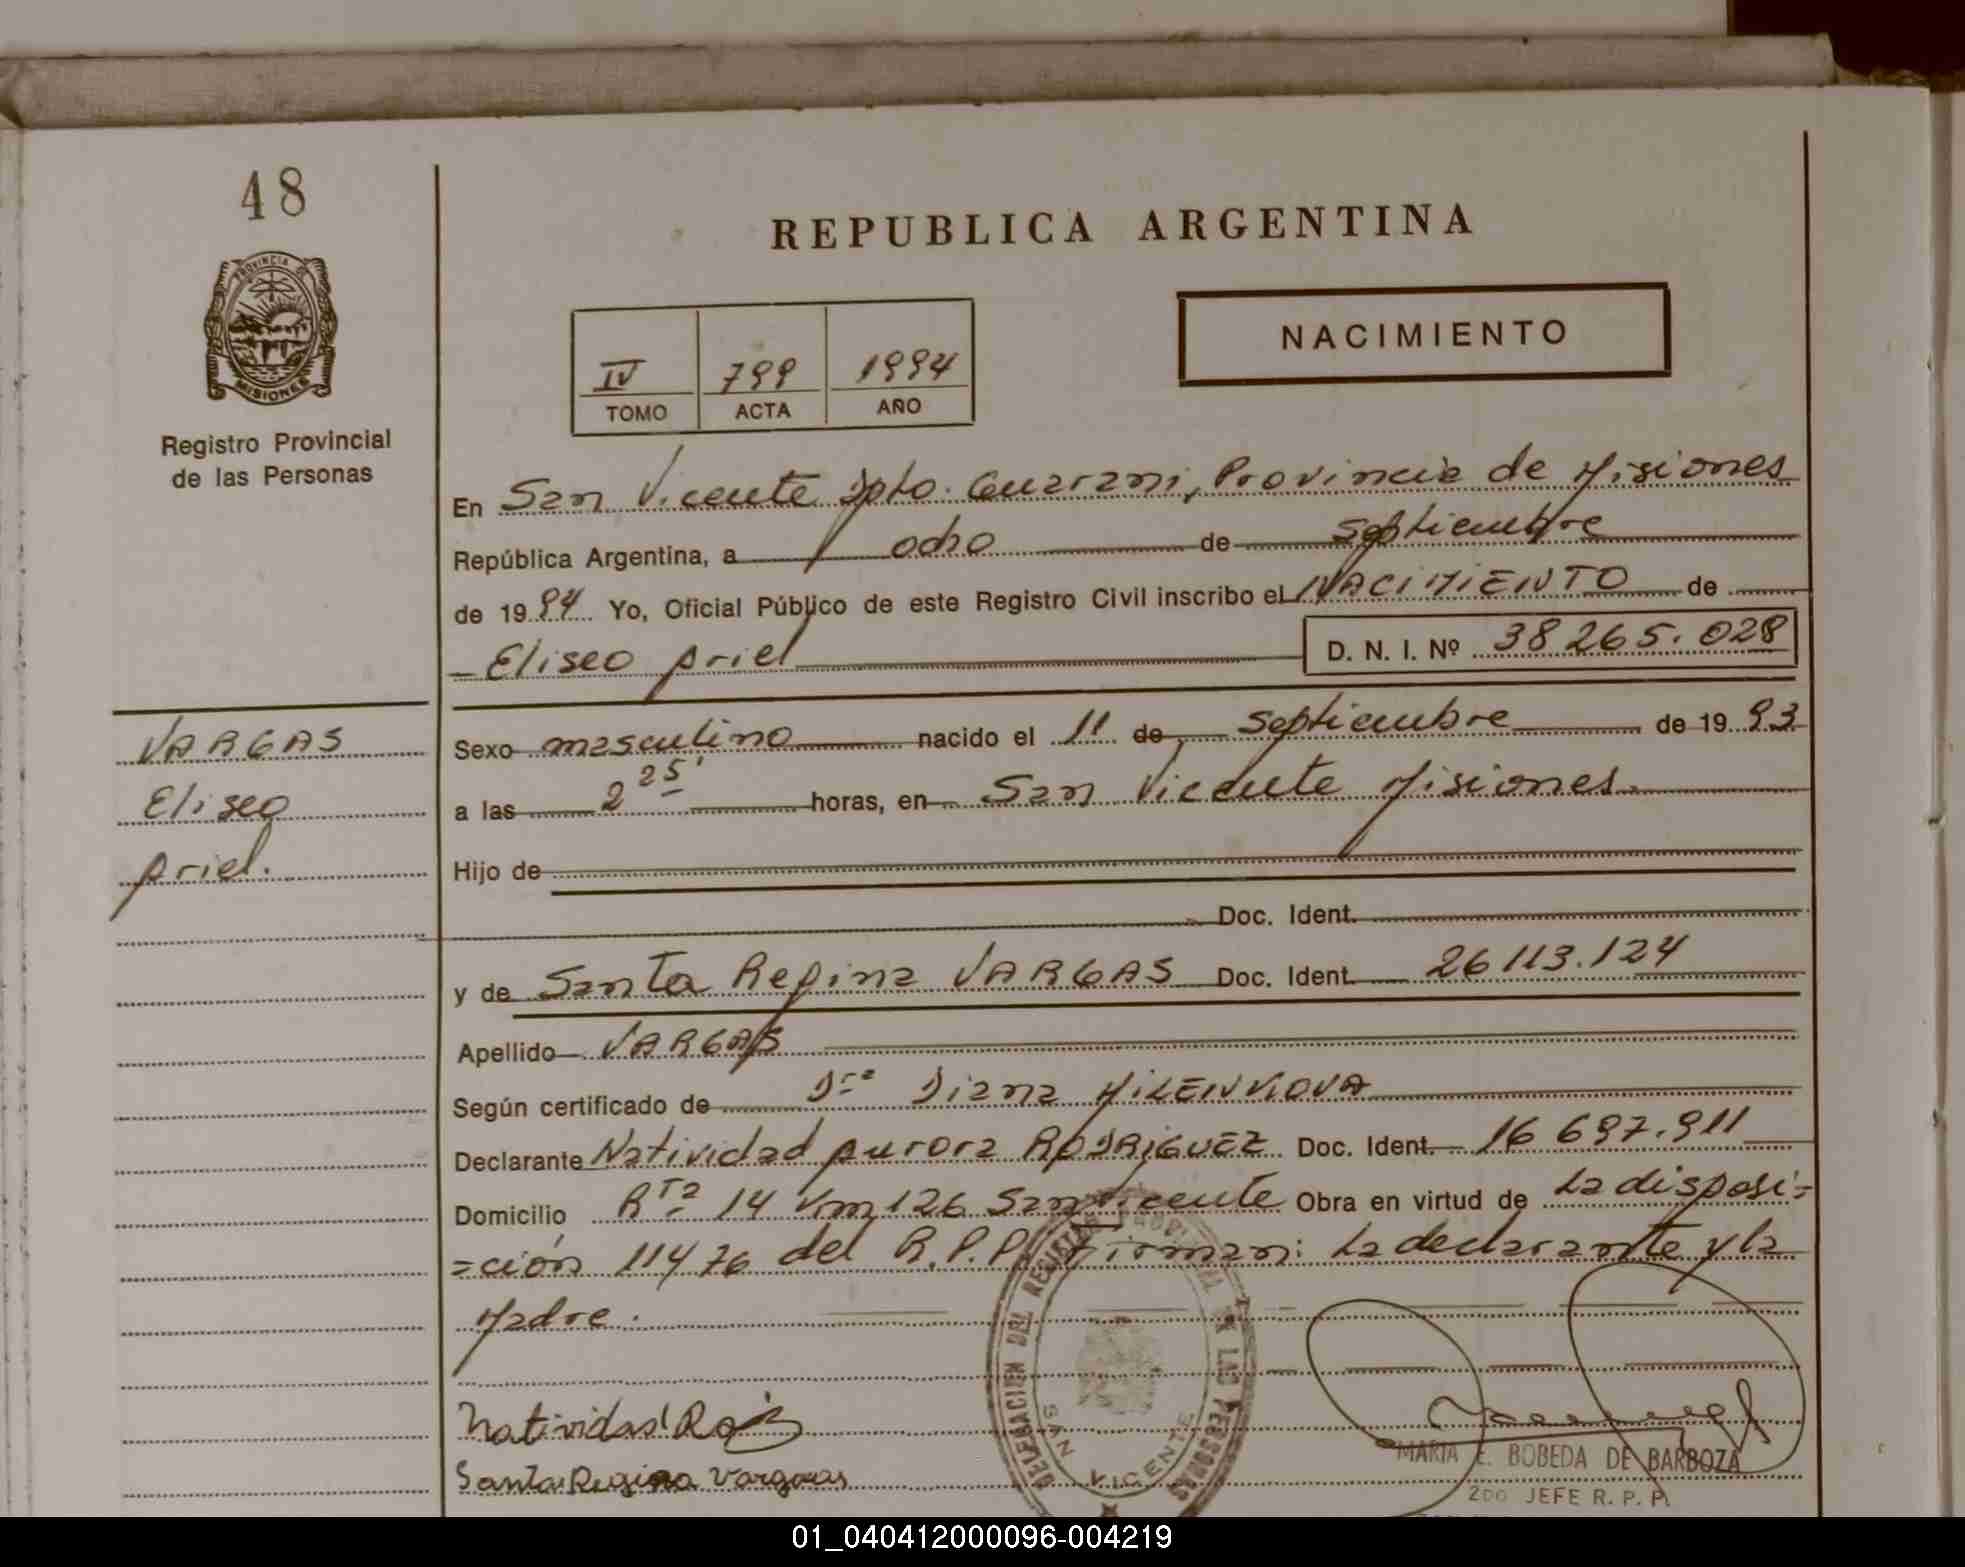 48
PROVINCIA DE
MISIONES
Registro Provincial
de las Personas
REPUBLICA ARGENTINA
NACIMIENTO
IV 799 1994
TOMO ACTA AÑO
En San Vicente Dpto. Guarani, Provincia de Misiones
República Argentina, a ocho de septiembre
de 1994. Yo, Oficial Público de este Registro Civil inscribo el NACIMIENTO de
Eliseo Ariel D. N. I. Nº 38265.028
VARGAS
Eliseo
Ariel.
Sexo masculino nacido el 11 de septiembre de 1993
a las 2 25' horas, en San Vicente Misiones.
Hijo de
Doc. Ident.
y de Santa Regina VARGAS Doc. Ident. 26113.124
Apellido VARGAS
Según certificado de Dra Diana
Declarante Natividad Aurora RODRIGUEZ Doc. Ident. 16 697.911
Domicilio Rta 14 Km 126 San Vicente Obra en virtud de La disposi=
=ción 114 76 del R.P.P. Firman: La declarante y la
Madre.
Natividad
Santa Regina Vargas
DELEGACION DEL REGISTRO PROVINCIAL DE LAS PERSONAS
SAN VICENTE
MARIA E. BOBEDA DE BARBOZA
2DO JEFE R. P. P.
01_040412000096-004219